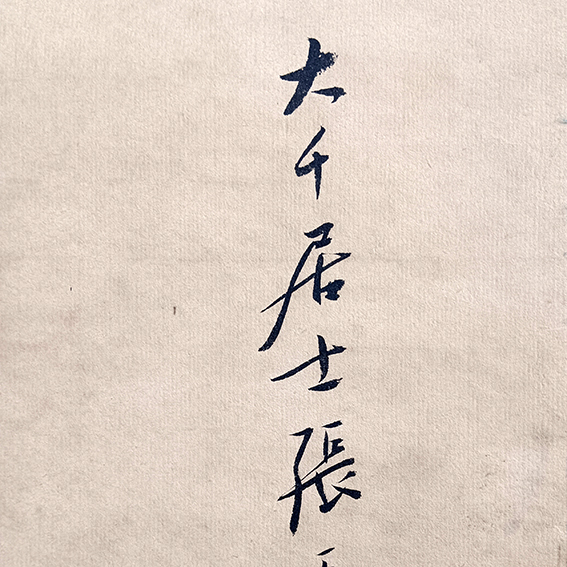 大千居士張